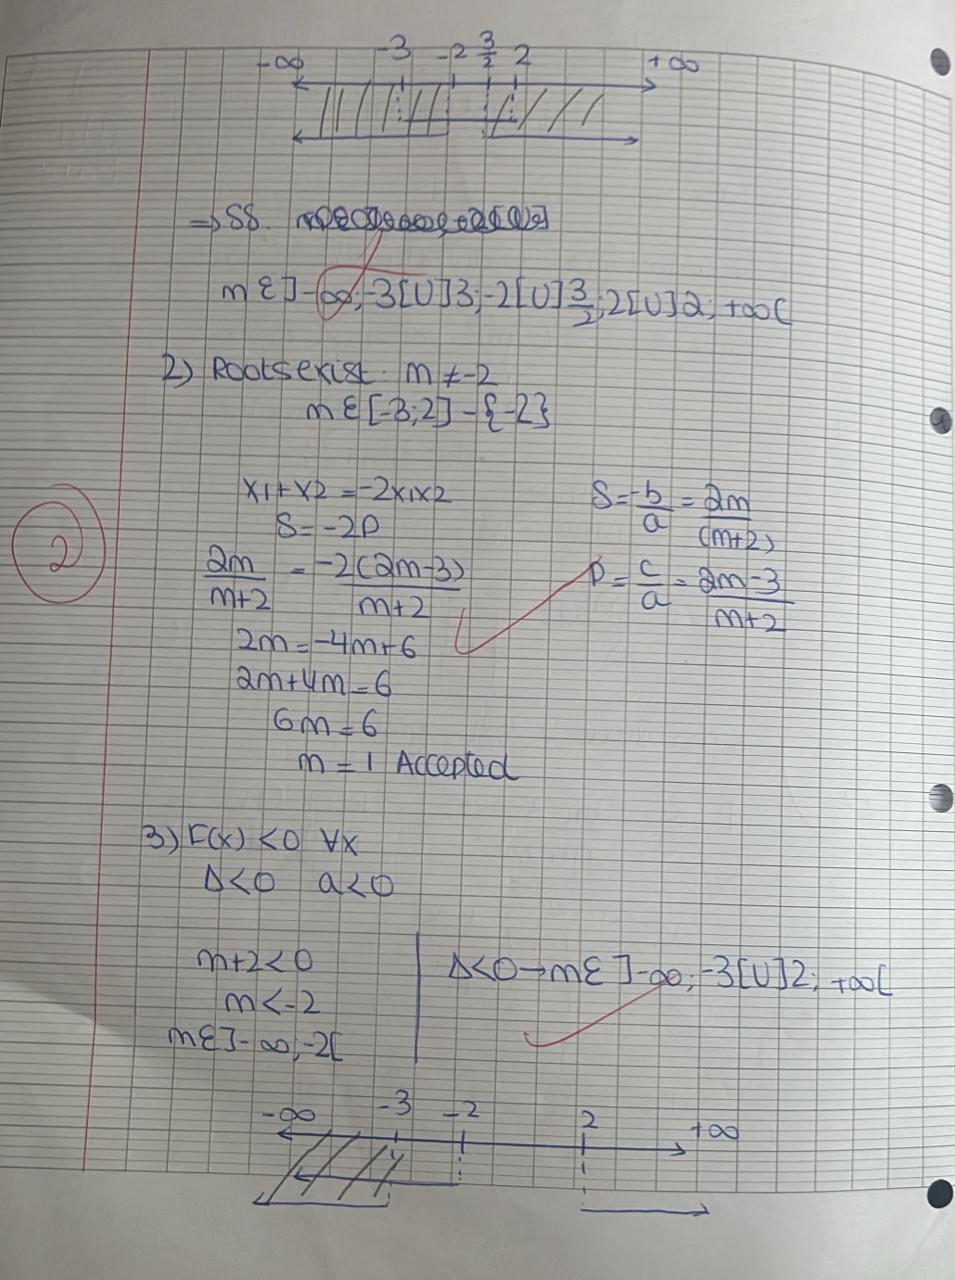 -∞ -3 -2 3/2 2 +∞
=> SS.
m ∈ ]-∞; -3[U]3; -2[U]3/2; 2[U]2; +∞[
2) Roots exist: m ≠ -2
m ∈ [-3;2] - {-2}
x1 + x2 = -2x1x2
S = -2P
2m/(m+2) = -2(2m-3)/(m+2)
2m = -4m+6
2m+4m = 6
6m = 6
m = 1 Accepted
S = -b/a = 2m/(m+2)
P = c/a = 2m-3/m+2
2
3) F(x) <0 ∀x
Δ<0 a<0
m+2<0
m<-2
m∈]-∞; -2[
Δ<0 → m∈ ]-∞; -3[U]2; +∞[
-∞ -3 -2 2 +∞